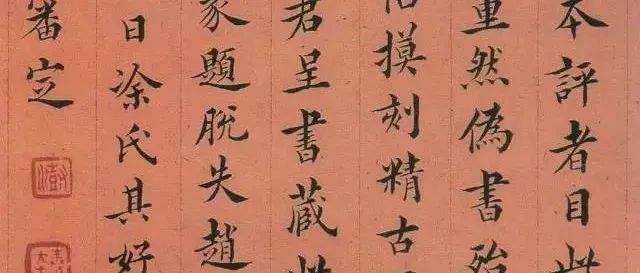 本評者目此
重然偽書殆
摸刻精古
君呈書藏
家題脫失趙
日涂氏其好
審定